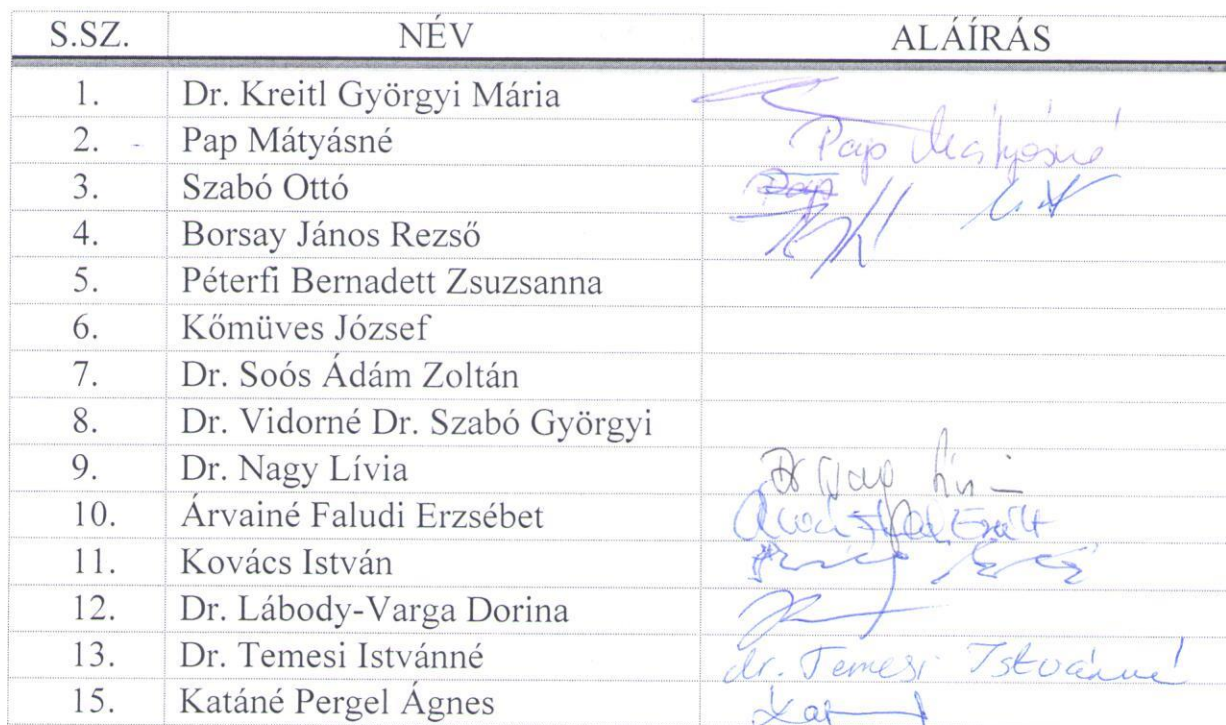 S.SZ. NÉV ALÁÍRÁS
1. Dr. Kreitl Györgyi Mária
2. Pap Mátyásné Pap Mátyásné
3. Szabó Ottó Pap
4. Borsay János Rezső
5. Péterfi Bernadett Zsuzsanna
6. Kőmüves József
7. Dr. Soós Ádám Zoltán
8. Dr. Vidorné Dr. Szabó Györgyi
9. Dr. Nagy Lívia
10. Árvainé Faludi Erzsébet
11. Kovács István
12. Dr. Lábody-Varga Dorina
13. Dr. Temesi Istvánné dr. Temesi Istvánné
15. Katáné Pergel Ágnes